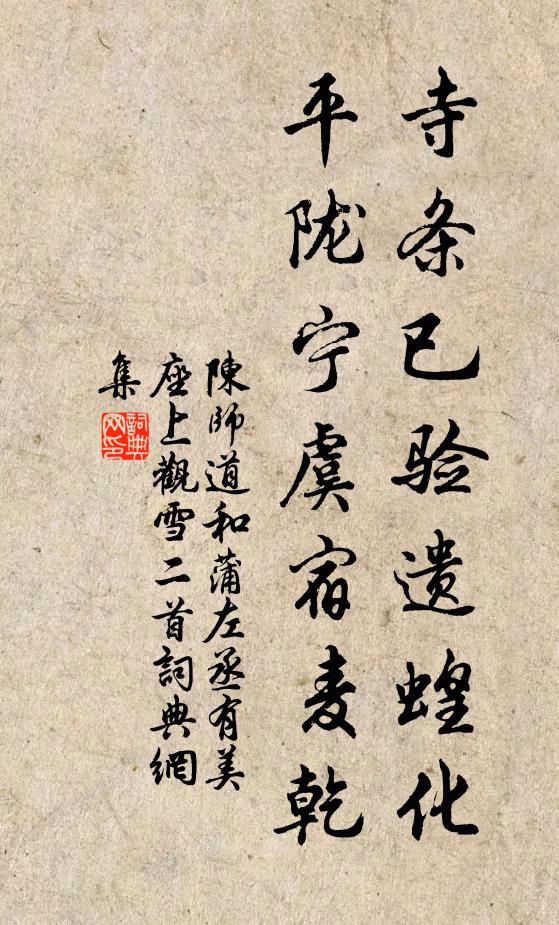 寺条已验遗蝗化
平陇宁虞宿麦乾
陳師道和蒲左丞有美
座上觀雪二首詞典網
集
詞典
网印